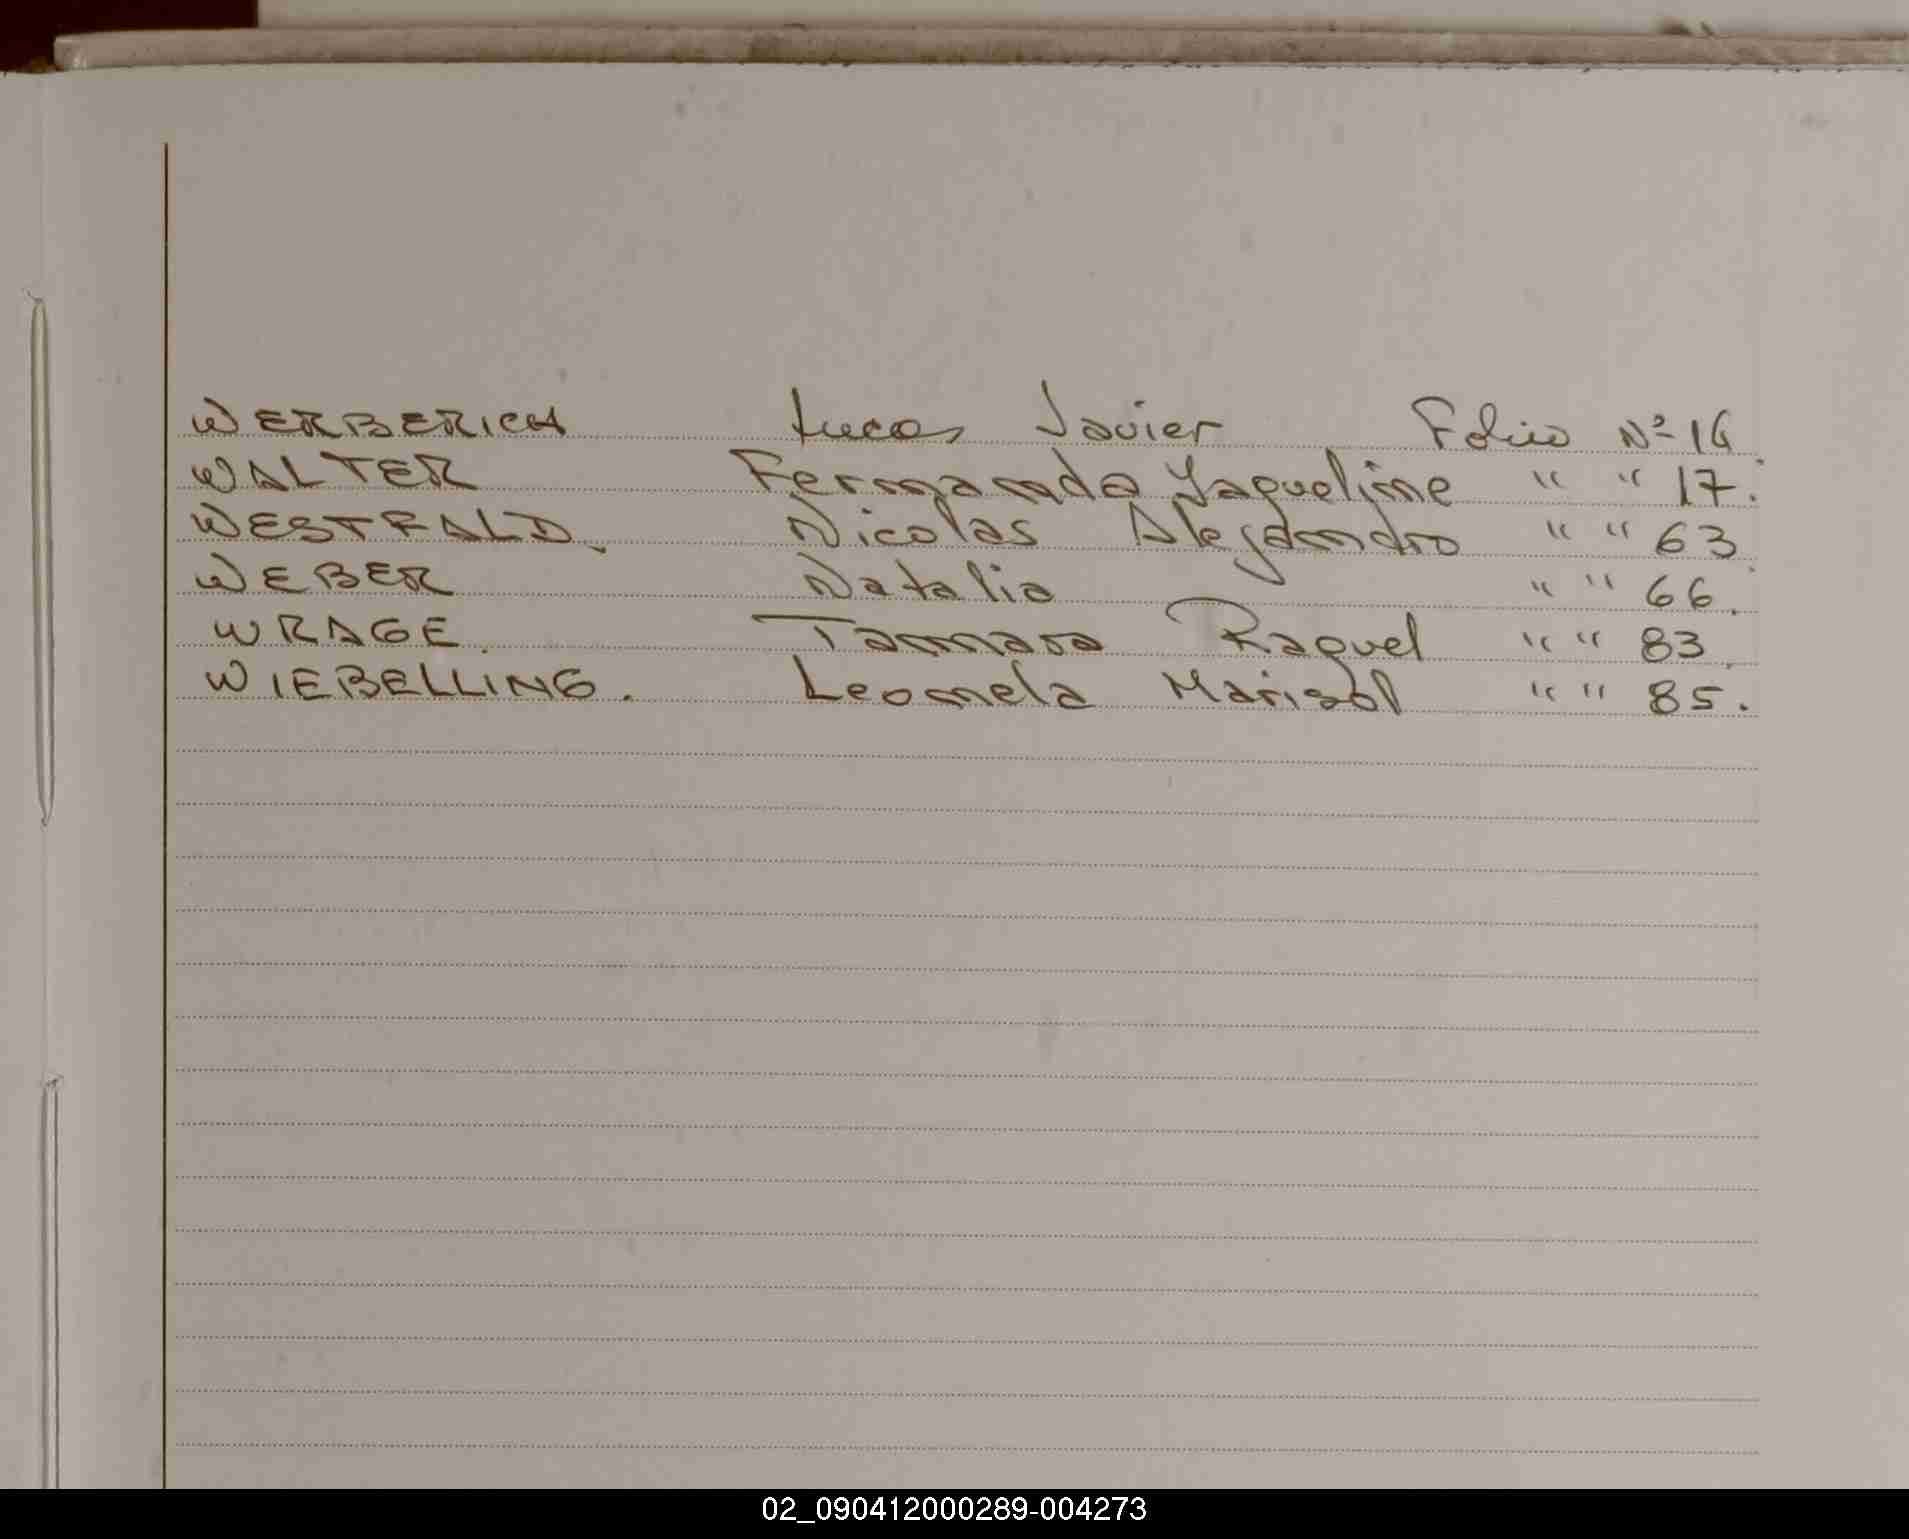 WERBERICH Lucas Javier Folio Nº 16
WALTER Fernanda Yaqueline " " 17.
WESTFALD. Nicolas Alejandro " " 63
WEBER Natalia " " 66.
WRAGE. Tamara Raquel " " 83.
WIEBELLING. Leonela Marisol " " 85.
02_090412000289-004273